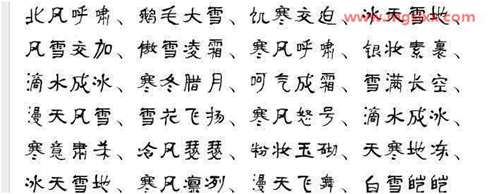 北风呼啸、鹅毛大雪、饥寒交迫、冰天雪地、
风雪交加、傲雪凌霜、寒风呼啸、银妆素裹、
滴水成冰、寒冬腊月、呵气成霜、雪满长空、
漫天风雪、雪花飞扬、寒风怒号、滴水成冰、
寒意肃杀、冷风瑟瑟、粉妆玉砌、天寒地冻、
冰天雪地、寒风凛冽、漫天飞舞、白雪皑皑